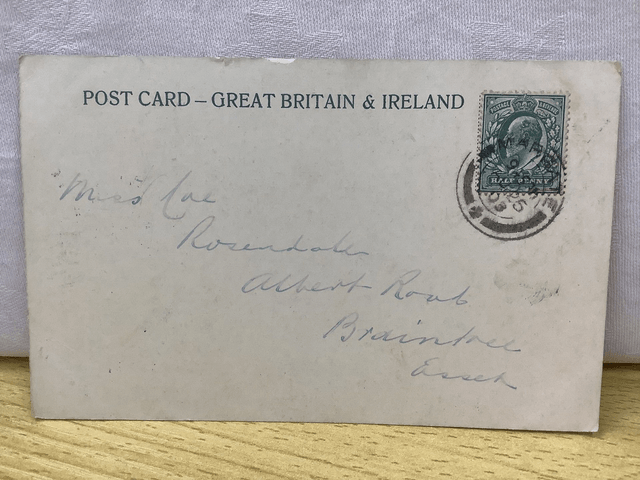 POST CARD – GREAT BRITAIN & IRELAND
HALFPENNY
Miss Coe
Rosendale
Albert Road
Braintree
Essex